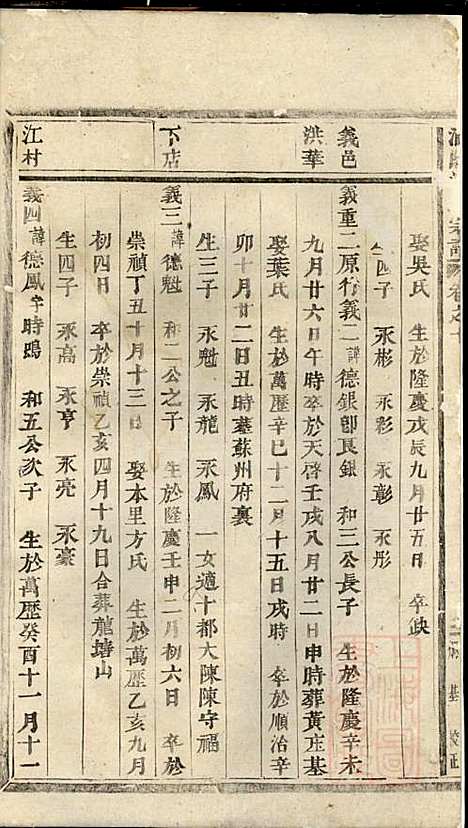 娶吳氏　生於隆慶戊辰九月廿五日　卒缺
生四子　永彬　永彩　永彰　永彤
義邑
洪華
義重二原行義二諱德銀卽良銀　和三公長子　生於隆慶辛未
九月廿六日午時卒於天啓壬戌八月廿二日申時葬黃庄基
娶葉氏　生於萬歷辛巳十二月十五日戌時　卒於順治辛
卯十月廿二日丑時墓蘇州府裏
生三子　永魁　永龍　永鳳　一女適十都大陳陳守福
下店
義三諱德魁　和二公之子　生於隆慶壬申二月初六日　卒於
崇禎丁丑十月十三日　娶本里方氏　生於萬歷乙亥九月
初四日　卒於崇禎乙亥四月十九日合葬龍塘山
生四子　永高　永亨　永亮　永豪
江村
義四諱德鳳字時鳴　和五公次子　生於萬歷癸酉十一月十一